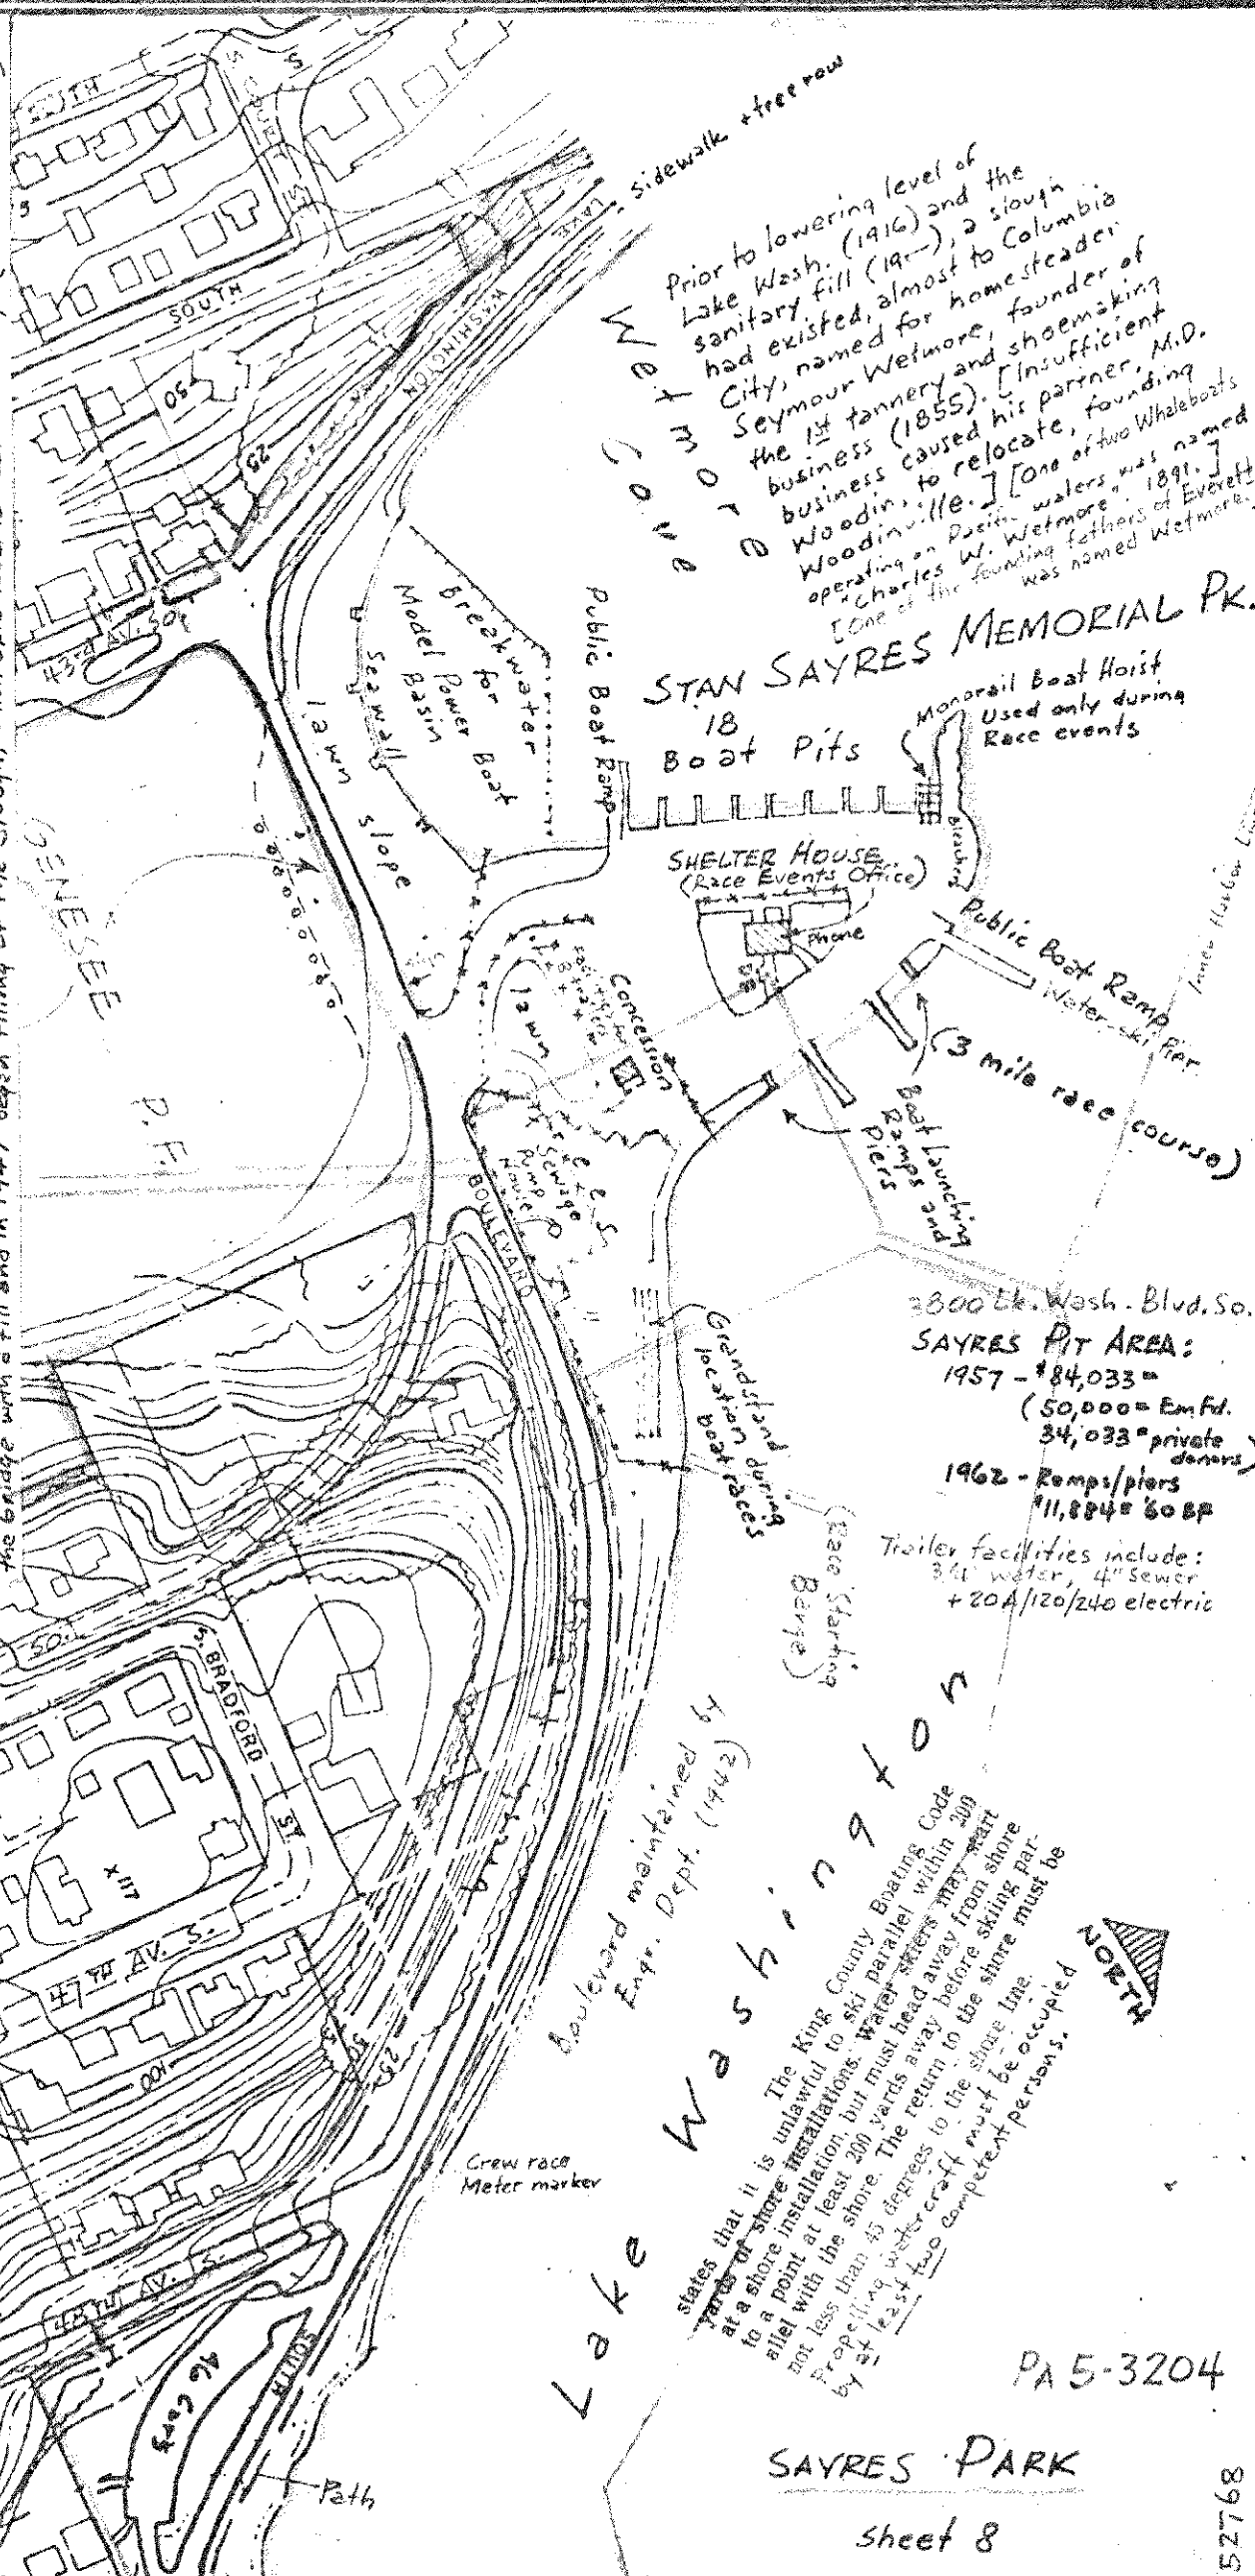 sidewalk + tree row
Prior to lowering level of
Lake Wash. (1916) and the
sanitary fill (19--), a slough
had existed, almost to Columbia
City, named for homesteader
Seymour Wetmore, founder of
the 1st tannery and shoemaking
business (1855). [Insufficient
business caused his partner, M.D.
Woodin, to relocate, founding
Woodinville.] [One of two Whaleboats
operating on Pacific waters was named
"Charles W. Wetmore". 1891.]
[One of the founding fathers of Everett
was named Wetmore.
Wetmore Cove
SOUTH
S. COURT ST.
SOUTH
LAKE
WASHINGTON
50
25
43rd AV. SO.
STAN SAYRES MEMORIAL PK.
18
Boat Pits
Monorail Boat Hoist
Used only during
Race events
Public Boat Ramp
Breakwater
for
Model Power Boat
Basin
Seawall
lawn slope
Bleachers
SHELTER HOUSE
(Race Events Office)
Phone
GENESEE
P.F.
Public Boat Ramp
Water-ski Pier
Inner Harbor Line
(3 mile race course)
Concession
lawn
Boat Launching
Ramps and
Piers
Sewage
Pump
House
BOULEVARD
the bridge with a fill and in 1947 began filling of the slough,
Grandstand
location during
boat races
(Race Starting
Barge)
3800 Lk. Wash. Blvd. So.
SAYRES PIT AREA:
1957 - $84,033=
(50,000= Em Fd.
34,033= private
donors)
1962 - Ramps/piers
$11,884= '60 BF
Trailer facilities include:
3/4" water, 4" sewer
+ 20A/120/240 electric
SO.
S. BRADFORD
ST.
X 117
47TH AV. S.
100
75
50
25
Boulevard maintained by
Engr. Dept. (1942)
Lake Washington
The King County Boating Code
states that it is unlawful to ski parallel within 200
yards of shore installations. Water skiers may start
at a shore installation, but must head away from shore
to a point at least 200 yards away before skiing par-
allel with the shore. The return to the shore must be
not less than 45 degrees to the shore line.
Propelling watercraft must be occupied
by at least two competent persons.
NORTH
Crew race
Meter marker
48TH AV. S.
46 Cars
SOUTH
Path
PA 5-3204
SAYRES PARK
Sheet 8
52768